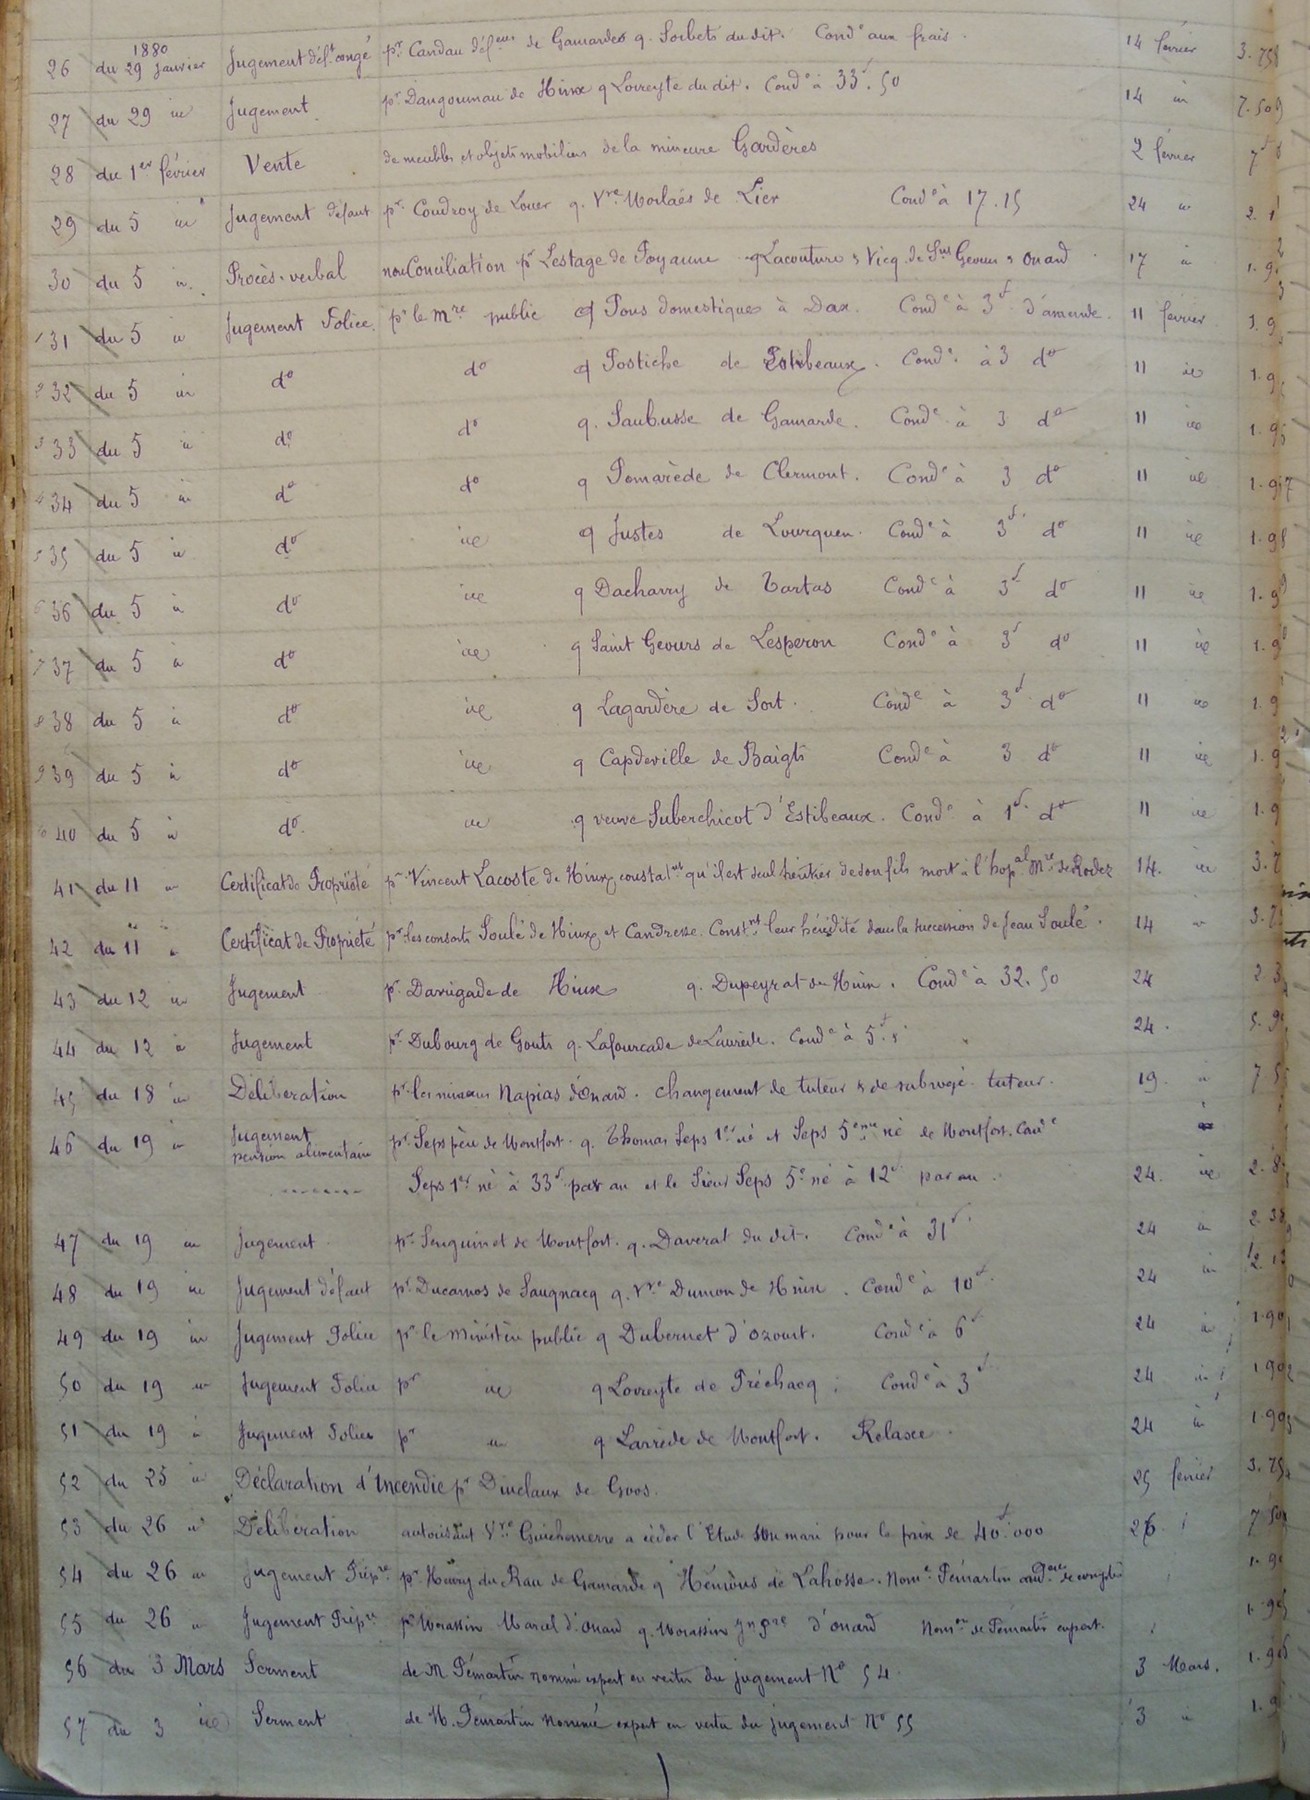 1880
26 du 29 Janvier Jugement déft congé pr Candau déf de Gamardes q. Sorbets du dit. Conde aux frais. 14 février 3.75
27 du 29 id Jugement pr Daugoumau de Hinx q Lovreyte du dit. Conde à 33f.50 14 id 7.50
28 du 1er février Vente de meubles et objets mobiliers de la mineure Gardères 2 février 7f
29 du 5 id Jugement défaut pr Coudroy de Louer q. Vve Morlaés de Lier Conde à 17.15 24 id 2.
30 du 5 id Procès-verbal non Conciliation pr Lestage de Poyanne q Lacouture & Vicq de St Geours & Onard 17 id 1.9
31 du 5 id Jugement Police pr le mre public q Pous domestique à Dax. Conde à 3f d'amende. 11 février 1.9
32 du 5 id do do q Postiche de Estibeaux. Conde à 3 do 11 id 1.9
33 du 5 id do do q. Saubusse de Gamarde. Conde à 3 do 11 id 1.95
34 du 5 id do do q Pomarède de Clermont. Conde à 3 do 11 id 1.9
35 du 5 id do id q Justes de Lourquen. Conde à 3f. do 11 id 1.9
36 du 5 id do id q Dacharry de Tartas Conde à 3f do 11 id 1.9
37 du 5 id do id q Saint Geours de Lesperon Conde à 3f do 11 id 1.9
38 du 5 id do id q Lagardère de Sort. Conde à 3f do 11 id 1.9
39 du 5 id do id q Capdeville de Baigts Conde à 3 do 11 id 1.9
40 du 5 id do id q veuve Suberchicot d'Estibeaux. Conde à 1f. do 11 id 1.9
41 du 11 id Certificat de Propriété pr Vincent Lacoste de Hinx constatant qu'il est seul héritier de son fils mort à l'hopal Mre de Rodez 14. id 3.7
42 du 11 id Certificat de Propriété pr les consorts Soulé de Hinx et Candresse. Constnt leur hérédité dans la succession de Jean Soulé. 14 id 3.7
43 du 12 id Jugement pr Darrigade de Hinx q. Dupeyrat de Hinx. Conde à 32.50 24 2.3
44 du 12 id Jugement pr Dubourg de Gouts q. Lafourcade de Laurède. Conde à 5f. 24. 5.9
45 du 18 id Délibération pr les mineurs Napias d'Onard. changement de tuteur & de subrogé tuteur. 19. id 7 5
46 du 19 id Jugement pension alimentaire pr Seps père de Montfort q. Thomas Seps 1er né et Seps 5eme né de Montfort. Conde
Seps 1er né à 33f par an et le Sieur Seps 5e né à 12f par an. 24. id 2.8
47 du 19 id Jugement pr Senguinet de Montfort. q. Daverat du dit. Conde à 31f. 24 id 2.38
48 du 19 id Jugement défaut pr Ducamos de Saugnacq q. Vve Dumon de Hinx. Conde à 10f. 24 id 2.13
49 du 19 id Jugement Police pr le Ministère public q Dubernet d'Ozourt. Conde à 6f 24 id 1.90
50 du 19 id Jugement Police pr id q Lovreyte de Préchacq. Conde à 3f. 24 id 1.90
51 du 19 id Jugement Police pr id q Larrède de Montfort. Relaxée. 24 id 1.90
52 du 25 id Déclaration d'Incendie pr Duclaux de Goos. 25 février 3.75
53 du 26 id Délibération autorisant Vve Guichemerre a céder l'Etude son mari pour le prix de 40f.000 26. 7 50
54 du 26 id Jugement Prépre pr Haury du Rau de Gamarde q Hémous de Lahosse. Nome Pémartin de comptes 1.9
55 du 26 id Jugement Prépre pr Morassin Marcel d'Onard q. Morassin d'onard Nomon de Pémartin expert. 1.95
56 du 3 Mars Serment de M Pémartin nommé expert en vertu du jugement No 54. 3 Mars. 1.9
57 du 3 id Serment de M. Pémartin nommé expert en vertu du jugement No 55 3 id 1.9